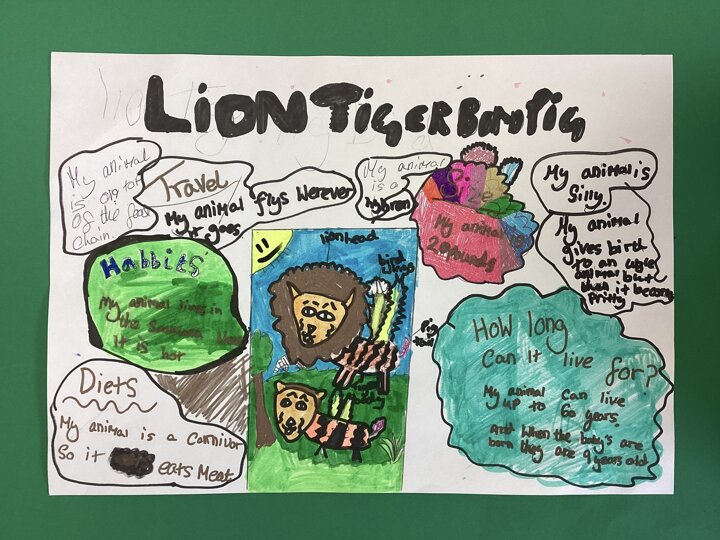 LION TIGER
My animal
is on top
of the food
chain.
Travel
My animal flys werever
it goes
My animal
is a
Size
My animal is
20 Pounds
My animal is
silly.
My animal
gives birth
to an ugly
animal but
then it become
Pritty
Habbits
My animal lives in
the Savanna
It is hot
lion head
bird wings
Pig
tail
How long
Can It live
for?
My animal can live
up to 60 years.
and when the baby's are
born they are 9 years old
Diets
My animal is a Carnivor
So it eats Meat